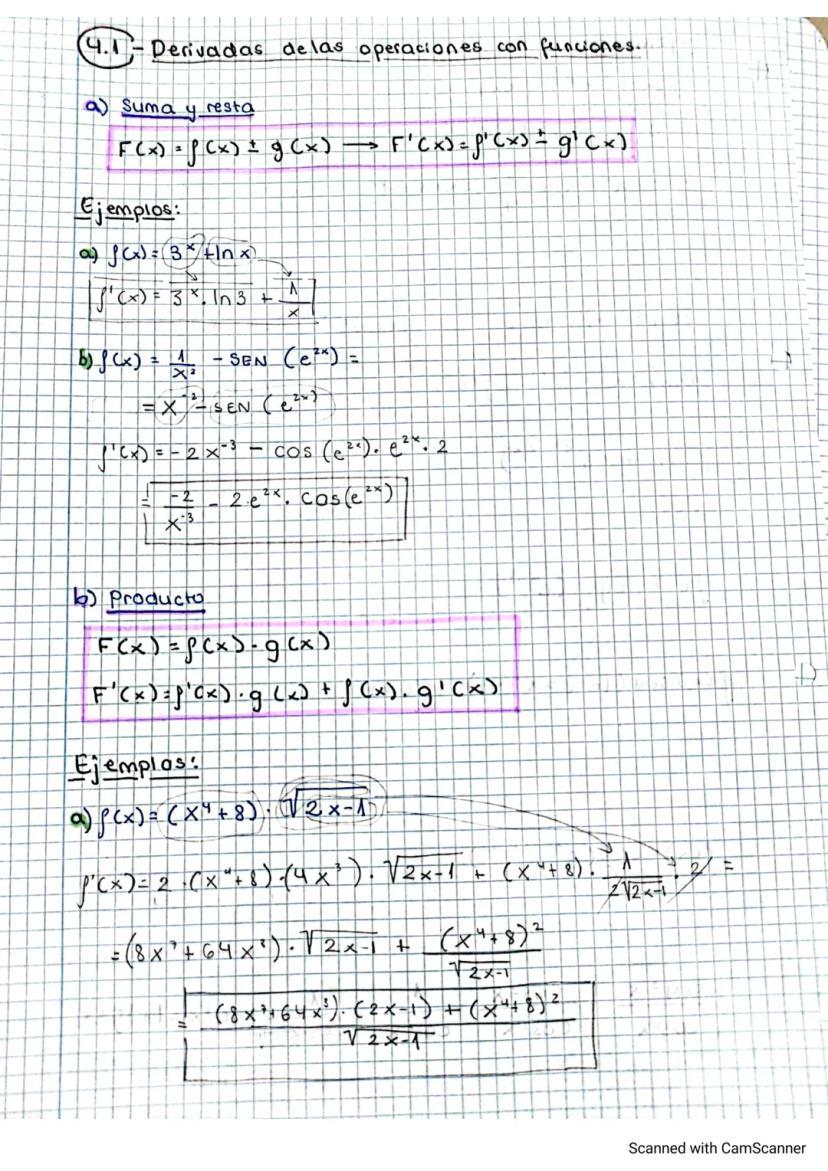 4.1 - Derivadas de las operaciones con funciones.
a) Suma y resta
F(x) = f(x) ± g(x) → F'(x) = f'(x) ± g'(x)
Ejemplos:
a) f(x) = 3ˣ + ln x
f'(x) = 3ˣ · ln 3 + 1/x
b) f(x) = 1/x² - SEN (e²ˣ) =
= x⁻² - SEN (e²ˣ)
f'(x) = -2x⁻³ - cos (e²ˣ) · e²ˣ · 2
= -2/x⁻³ - 2·e²ˣ · cos(e²ˣ)
b) Producto
F(x) = f(x) · g(x)
F'(x) = f'(x) · g(x) + f(x) · g'(x)
Ejemplos:
a) f(x) = (x⁴ + 8) · √(2x-1)
f'(x) = 2 · (x⁴ + 8) · (4x³) · √(2x-1) + (x⁴ + 8) · 1/(2√(2x-1)) · 2 =
= (8x⁷ + 64x³) · √(2x-1) + (x⁴ + 8)²/√(2x-1)
= ((8x⁷ + 64x³) · (2x-1) + (x⁴ + 8)²)/√(2x-1)
Scanned with CamScanner